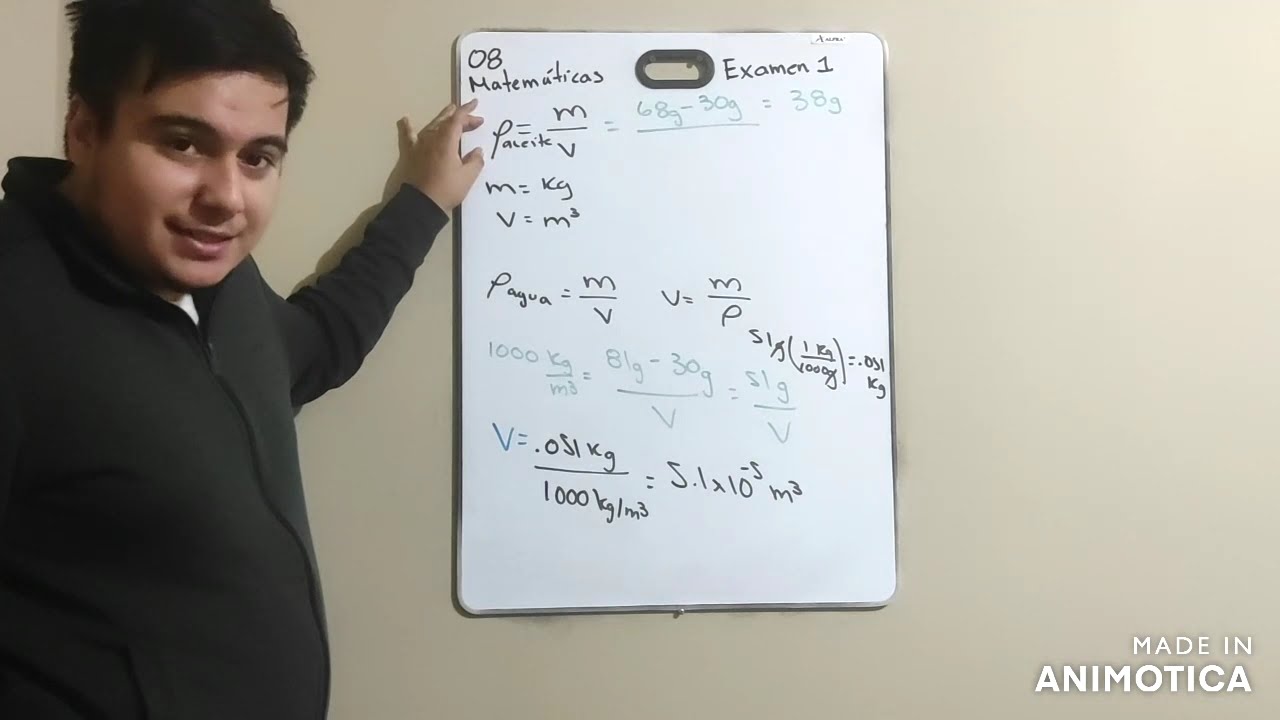 08
Matemáticas
Examen 1
ρaceite = m/V = 68g - 30g = 38g
m = kg
V = m³
ρagua = m/V V = m/ρ
51g (1 kg/1000g) = .051 kg
1000 kg/m³ = 81g - 30g/V = 51g/V
V = .051 kg/1000 kg/m³ = 5.1x10⁻⁵ m³
MADE IN
ANIMOTICA